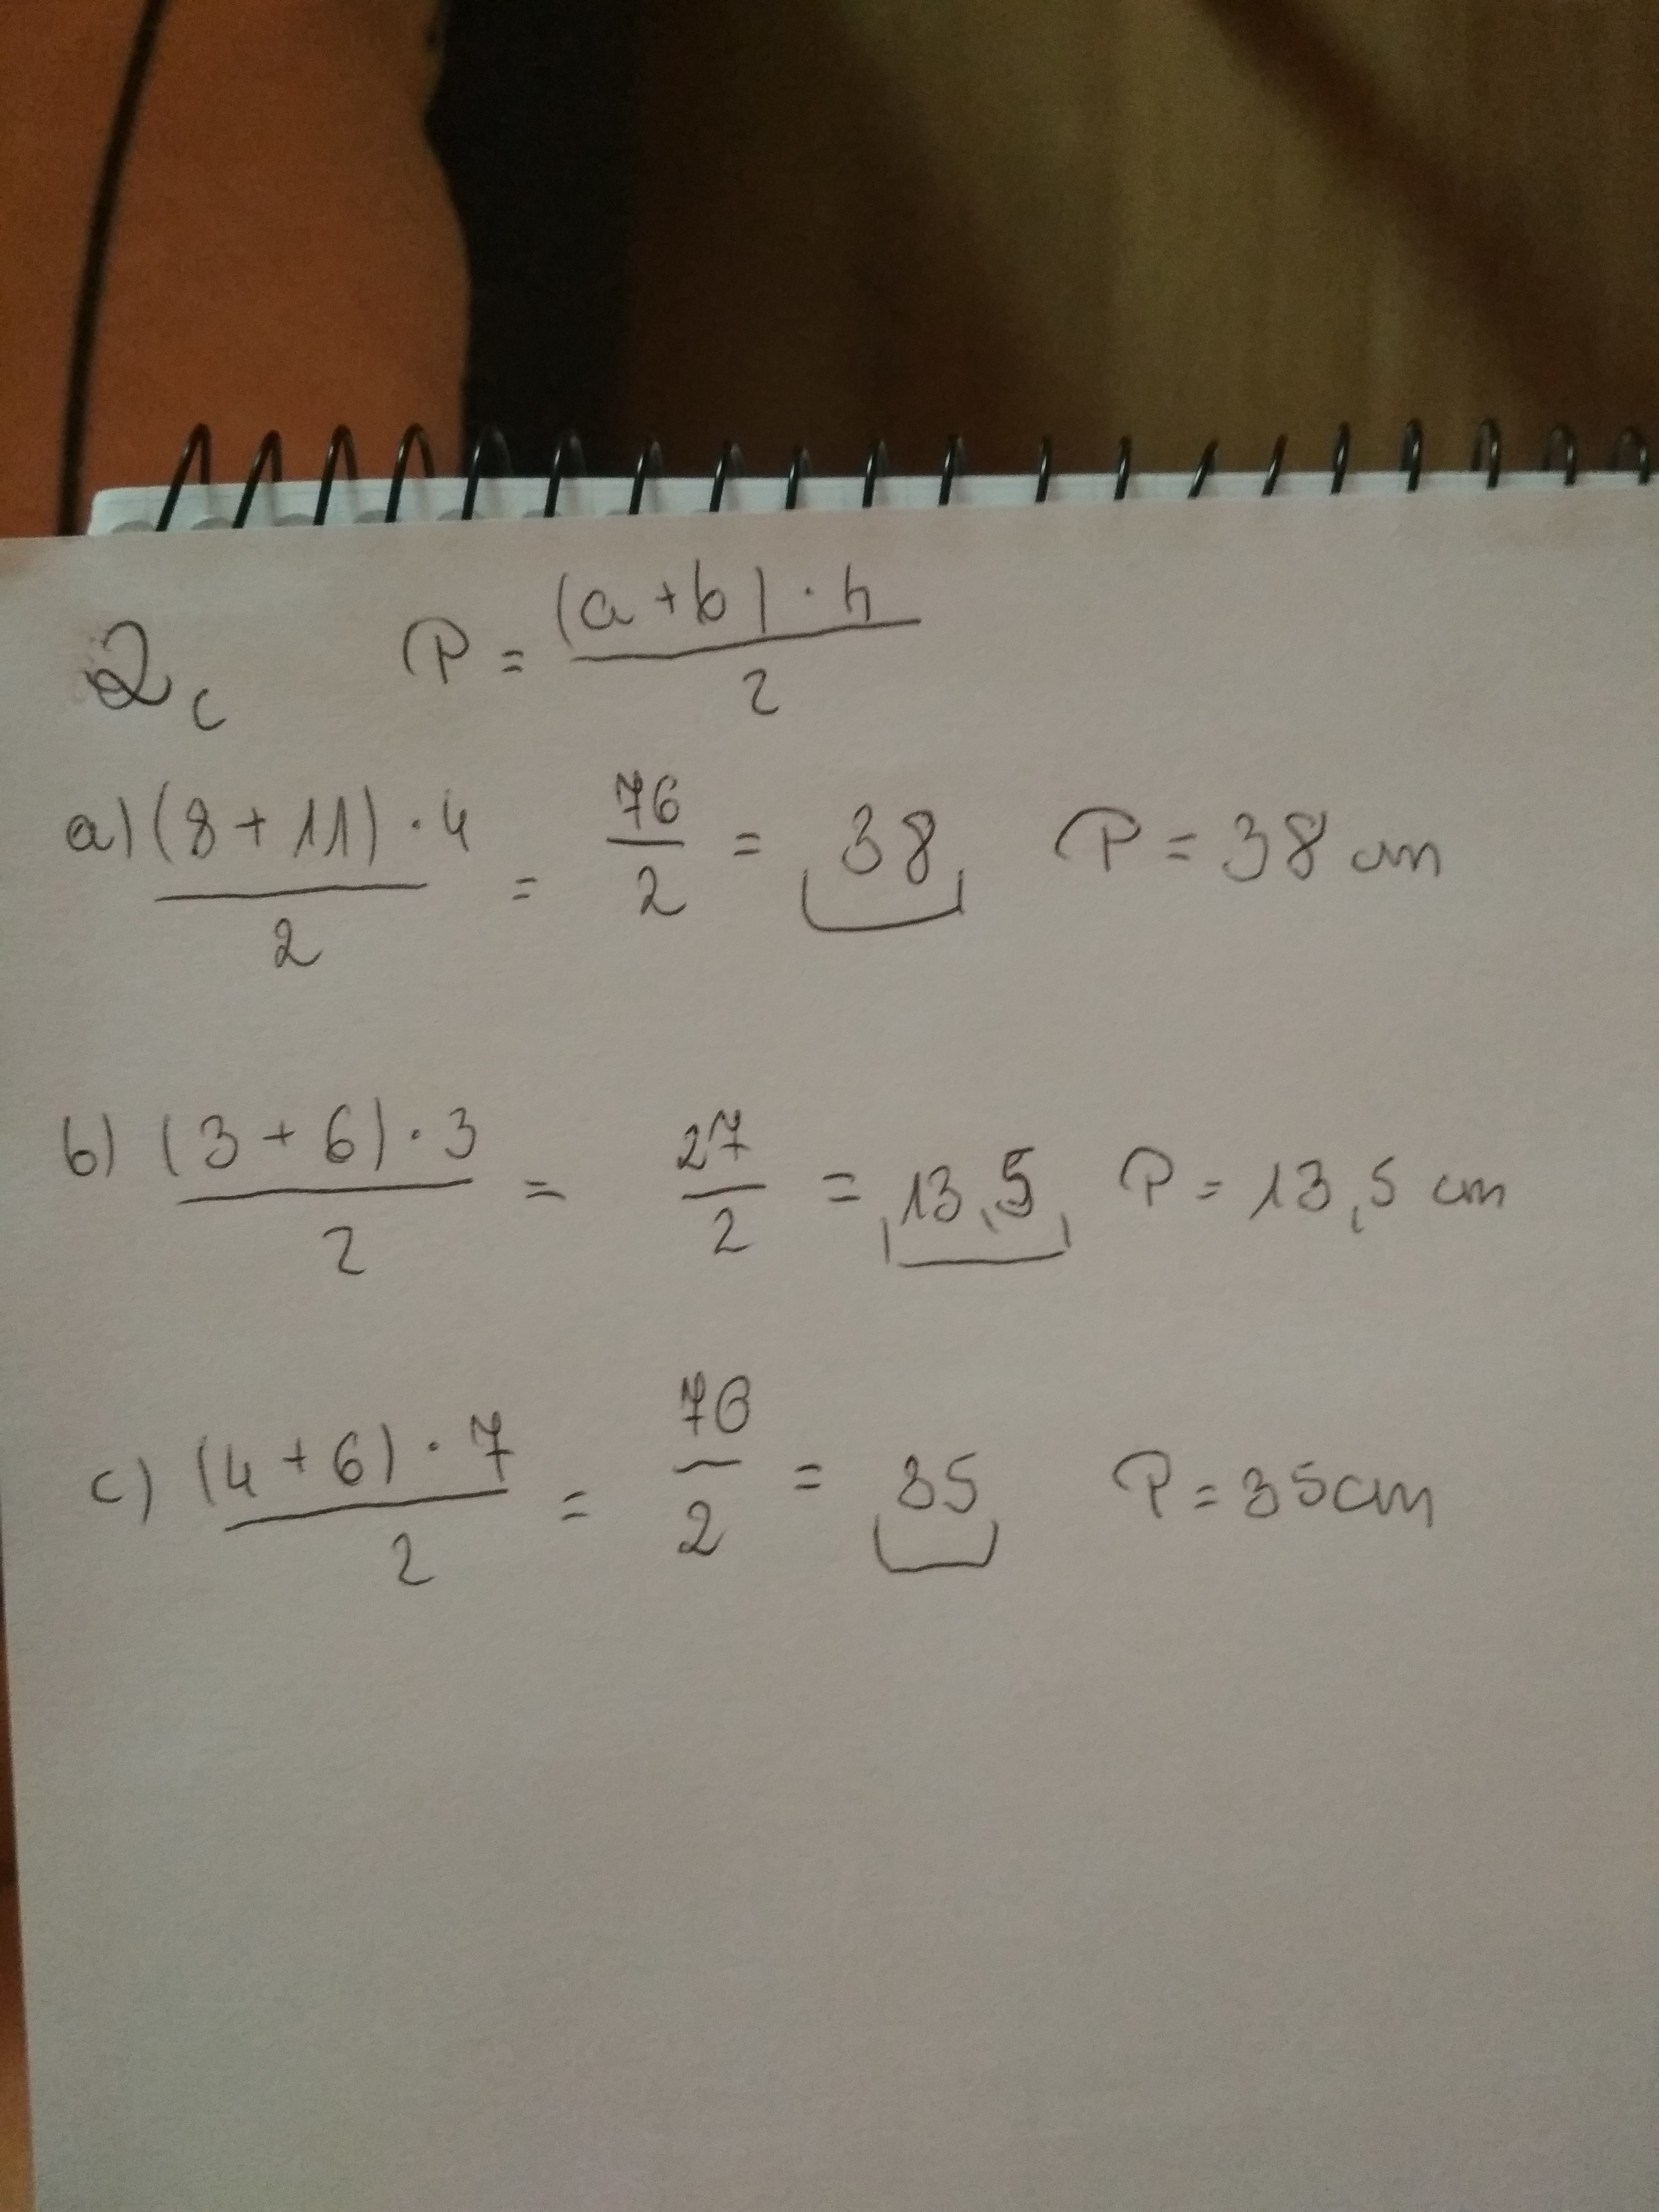 2c P = (a+b)·h / 2
a) (8+11)·4 / 2 = 76/2 = 38 P = 38 cm
b) (3+6)·3 / 2 = 27/2 = 13,5 P = 13,5 cm
c) (4+6)·7 / 2 = 70/2 = 35 P = 35cm